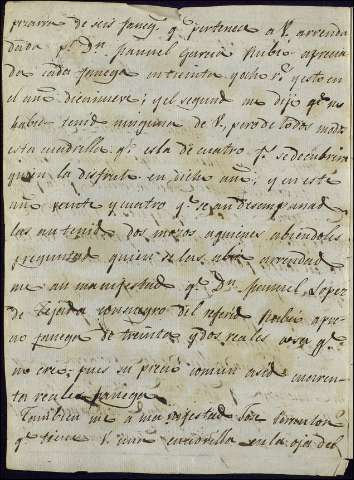 pizarra de seis faneg.s q.e pertenece a V. arrenda
dada p.r D.n Manuel Garcia Rubio aprecia
da cada fanega en treinta y ocho r.s y esto en
el año diecinueve; y el segund me dijo q.e no
habia tenid ninguna de V., pero de todos modos
esta cuadrilla q.e es la de cuatro f.s se descubrira
quien la disfrutó en dicho año; y en este
año veinte y cuatro q.e se an desempanad
las an tenido dos mozos a quienes abiendoles
preguntad quien se las abia arrendad
me an manifestad q.e D.n Manuel Lopez
de Tejada consuegro del referid Rubio a pre
cio fanega de treinta y dos reales cosa q.e
no creo, pues su precio comun a sid cuaren
ta reales fanega
Tambien me a manifestad Jose
q.e tiene V. una cuadrilla en la oja del